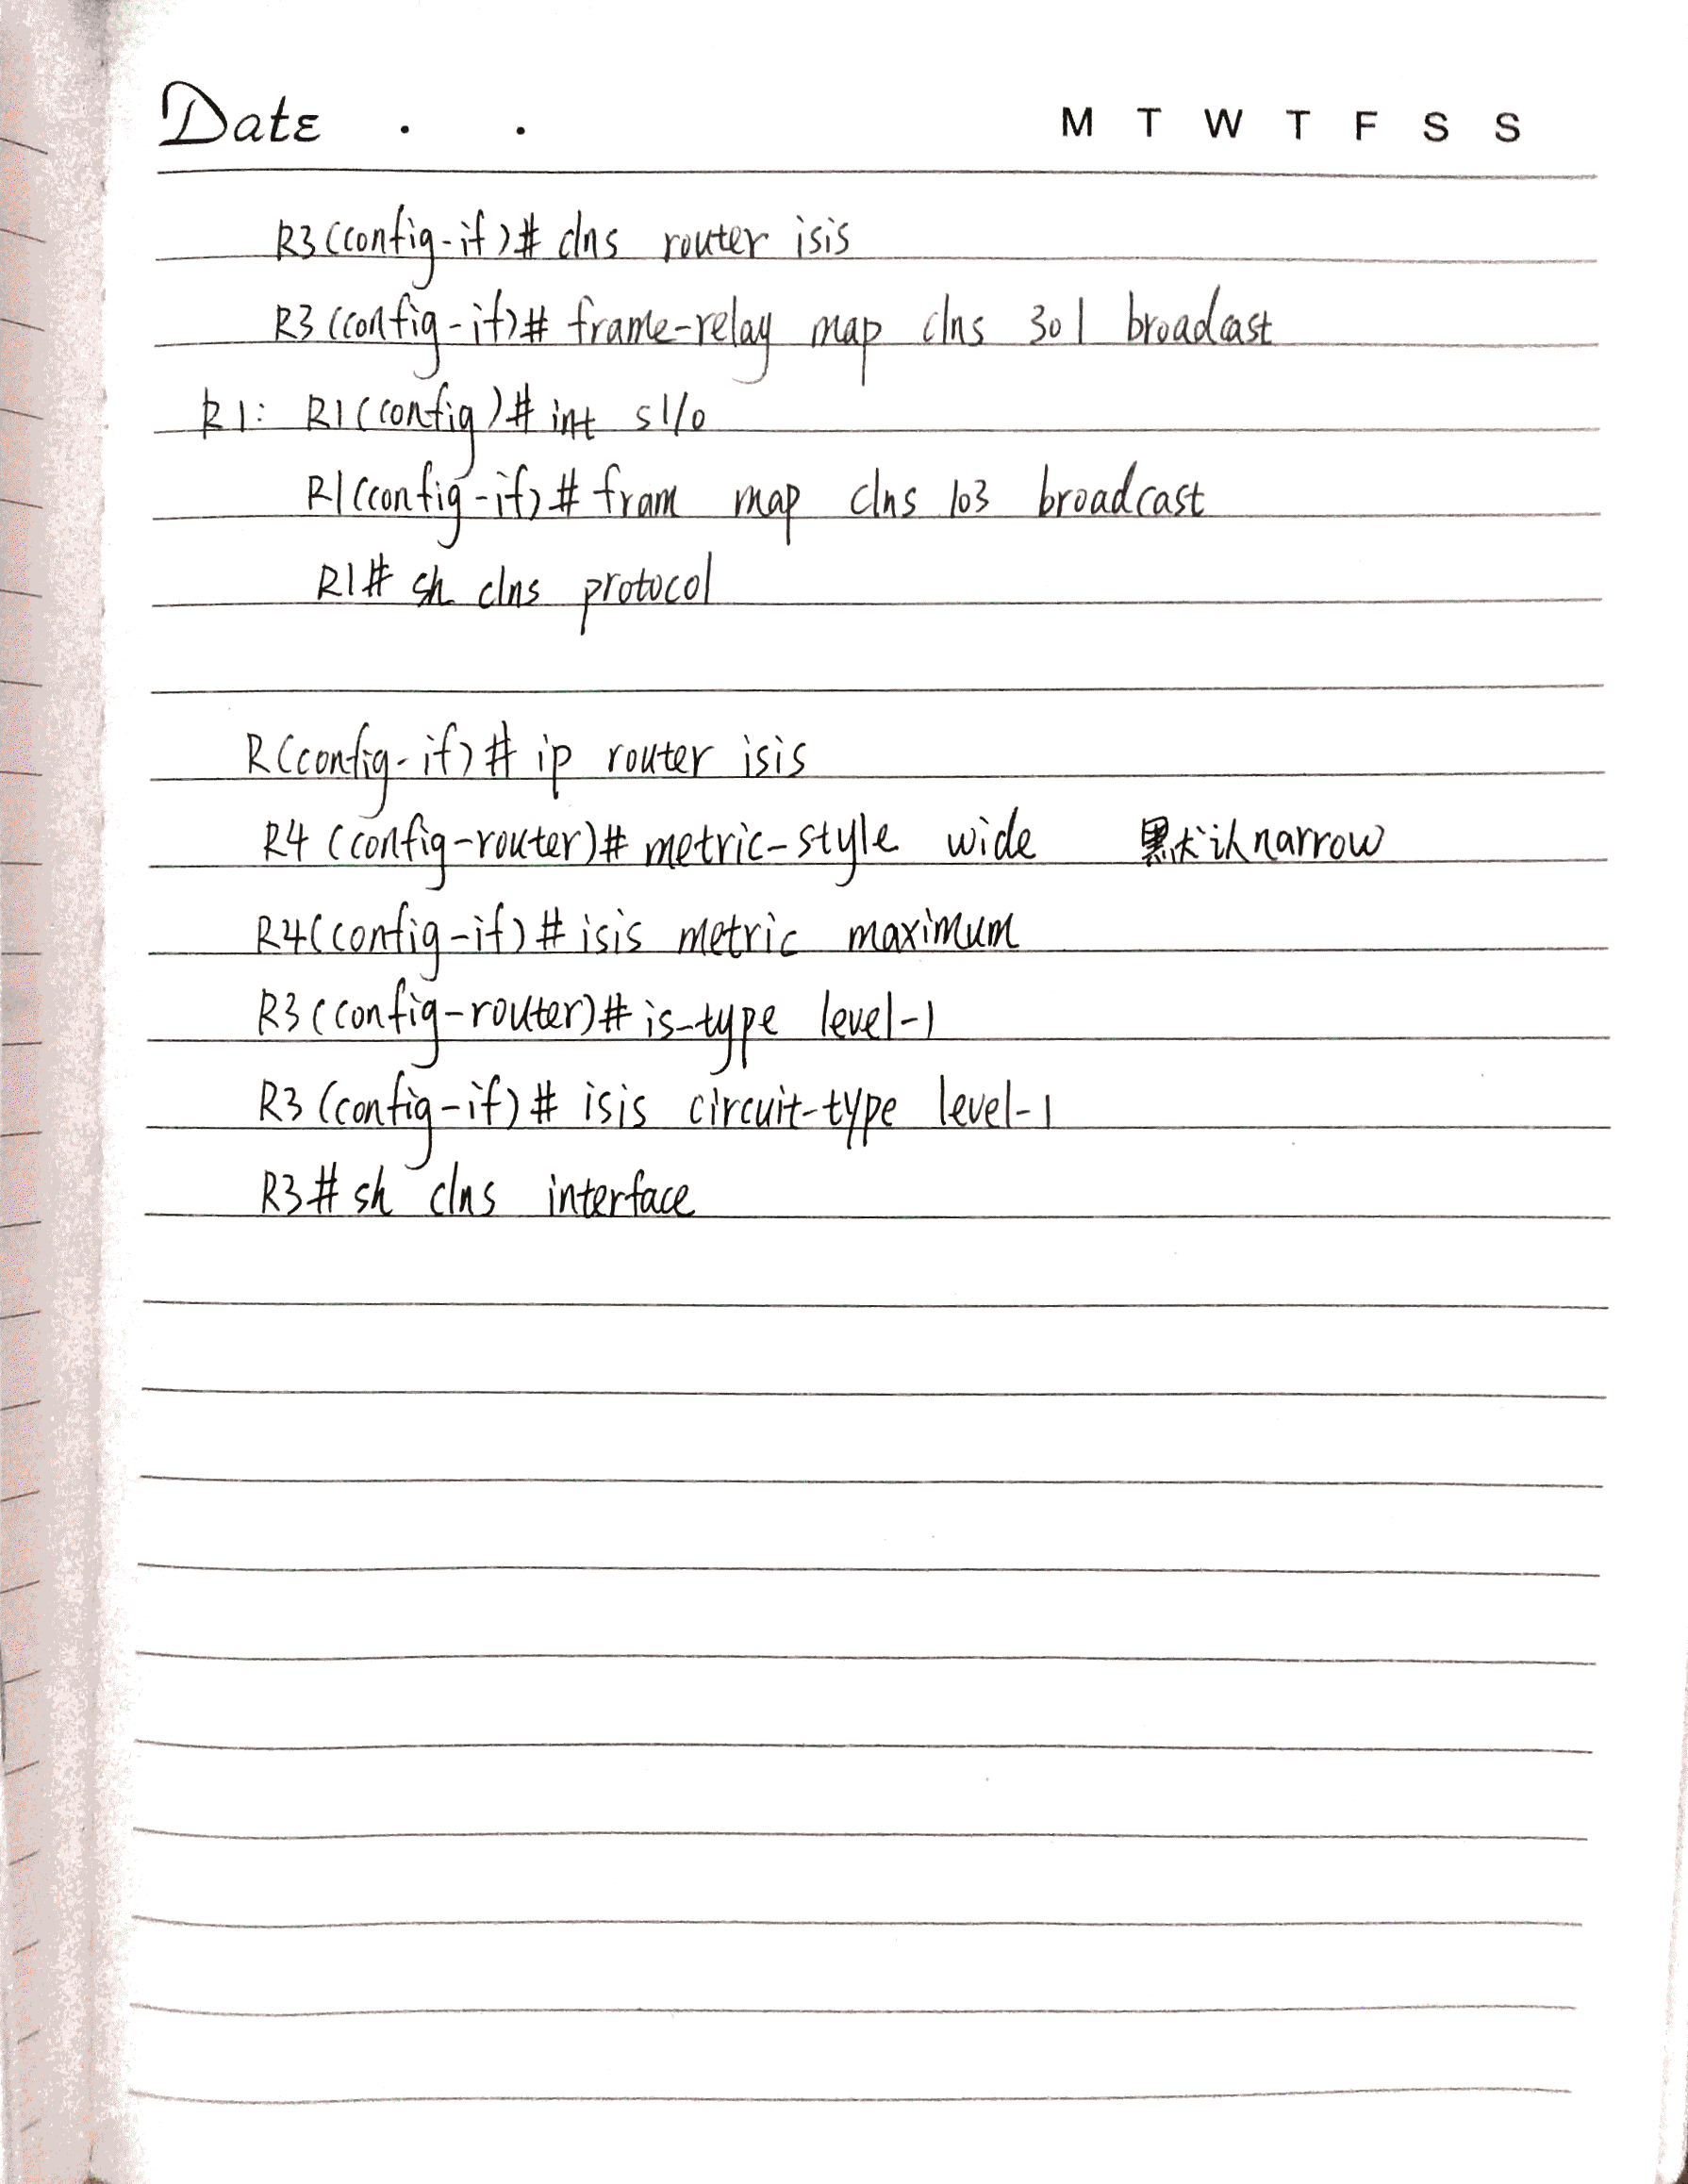 Date . . M T W T F S S
R3(config-if)# clns router isis
R3(config-if)# frame-relay map clns 301 broadcast
R1: R1(config)# int s1/0
R1(config-if)# fram map clns 103 broadcast
R1# sh clns protocol
R(config-if)# ip router isis
R4(config-router)# metric-style wide 默认narrow
R4(config-if)# isis metric maximum
R3(config-router)# is-type level-1
R3(config-if)# isis circuit-type level-1
R3# sh clns interface